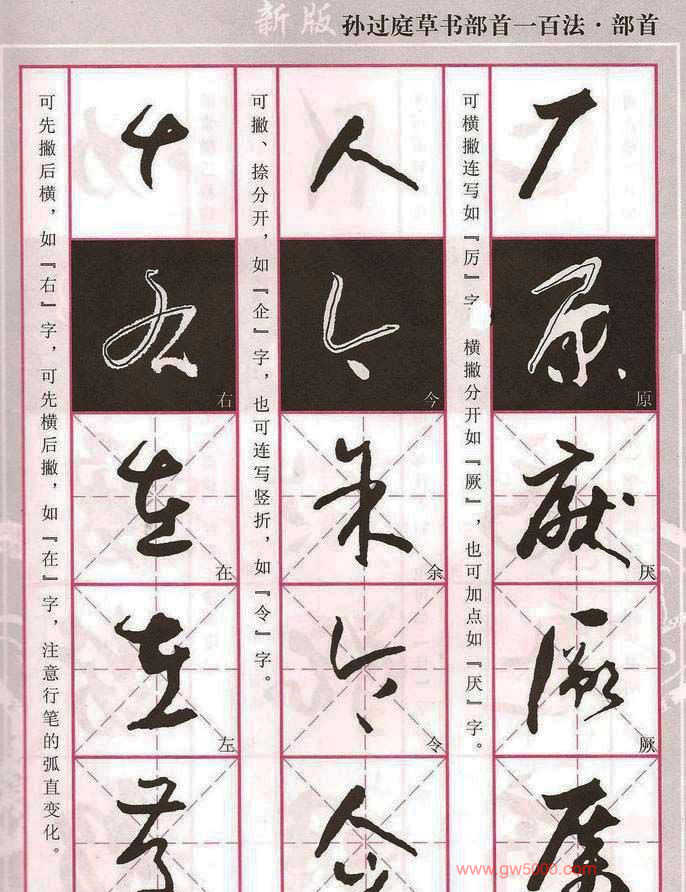 新版 孙过庭草书部首一百法·部首
可横撇连写如『厉』字 横撇分开如『厥』，也可加点如『厌』字。
厂
原
厌
厥
可撇、捺分开，如『企』字，也可连写竖折，如『令』字。
人
今
余
令
可先撇后横，如『右』字，可先横后撇，如『在』字，注意行笔的弧直变化。
右
在
左
www.gw5000.com